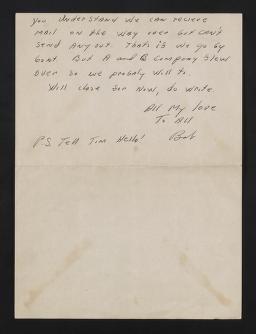 you understand we can recieve
mail on the way over but can't
send any out. Thats if we go by
boat. But A and B Company flew
over so we probaly will to.
Will close for now, do write.
All My love
To All
Bob
P.S. Tell Tim Hello!